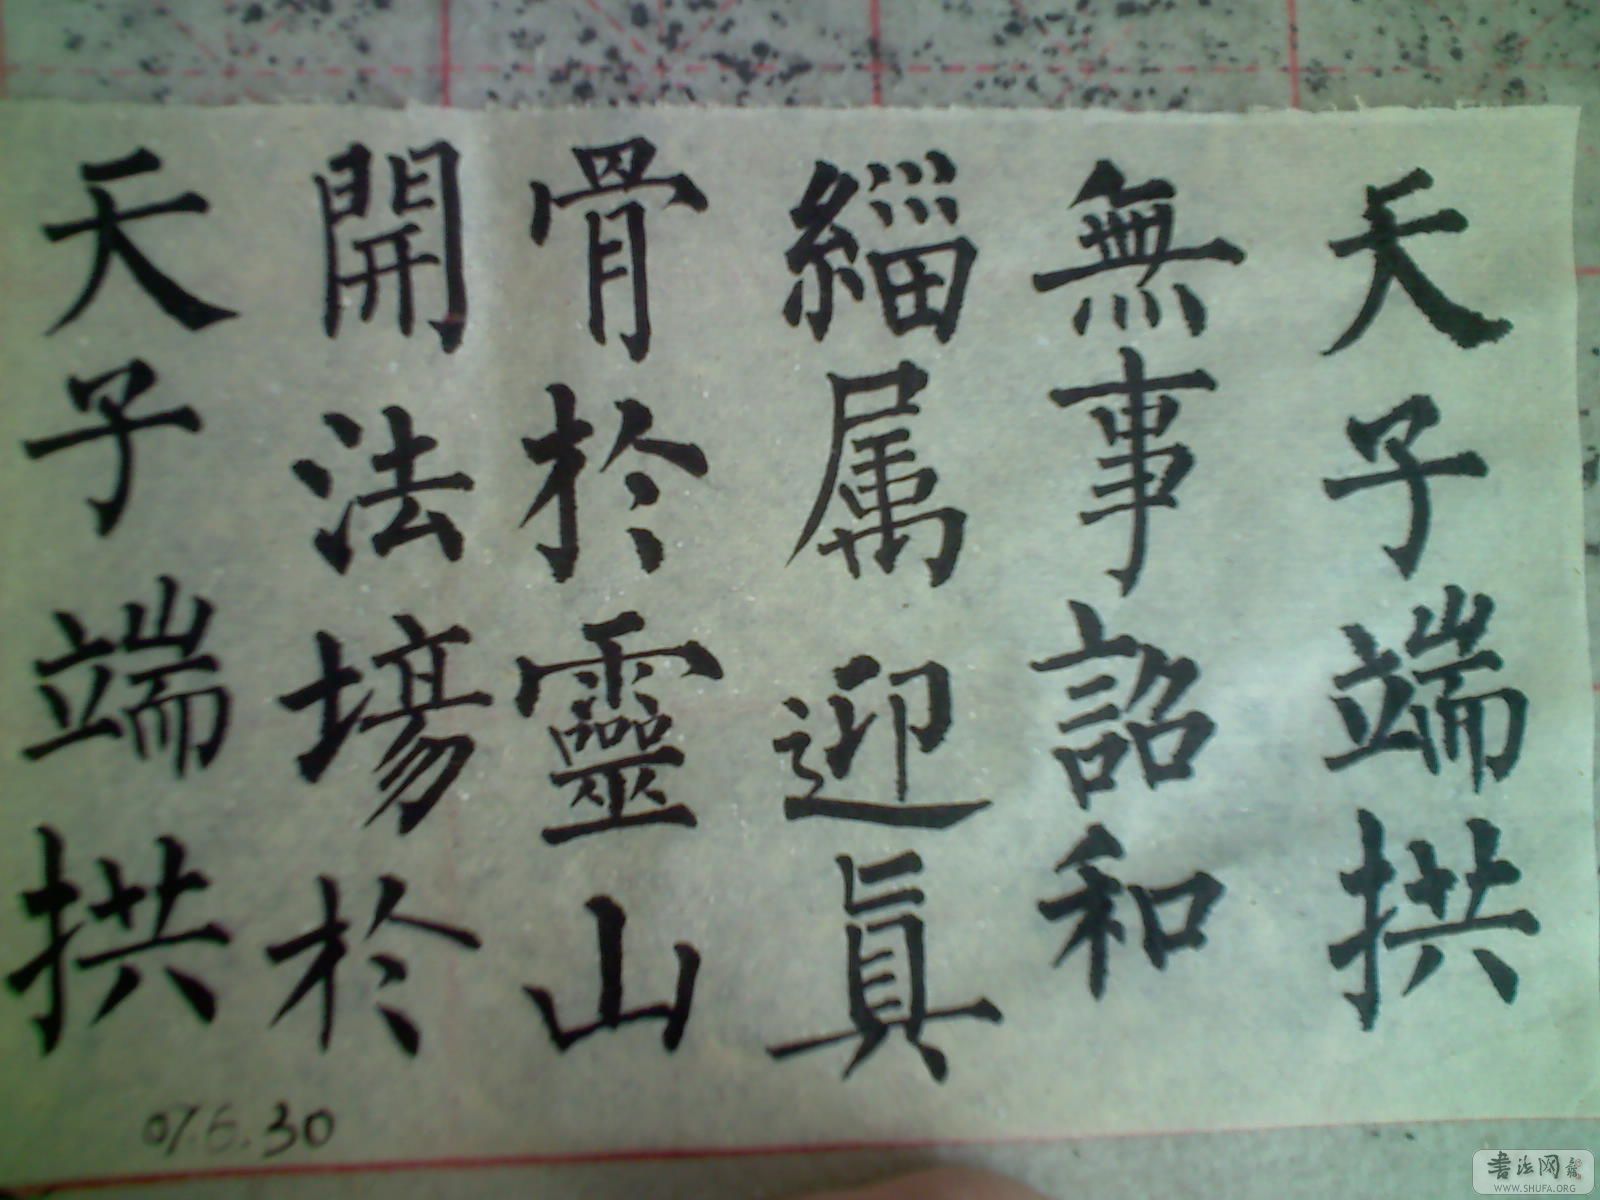 天子端拱
無事詔和
緇属迎眞
骨於靈山
開法場於
天子端拱
07.6.30
書法网
WWW.SHUFA.ORG